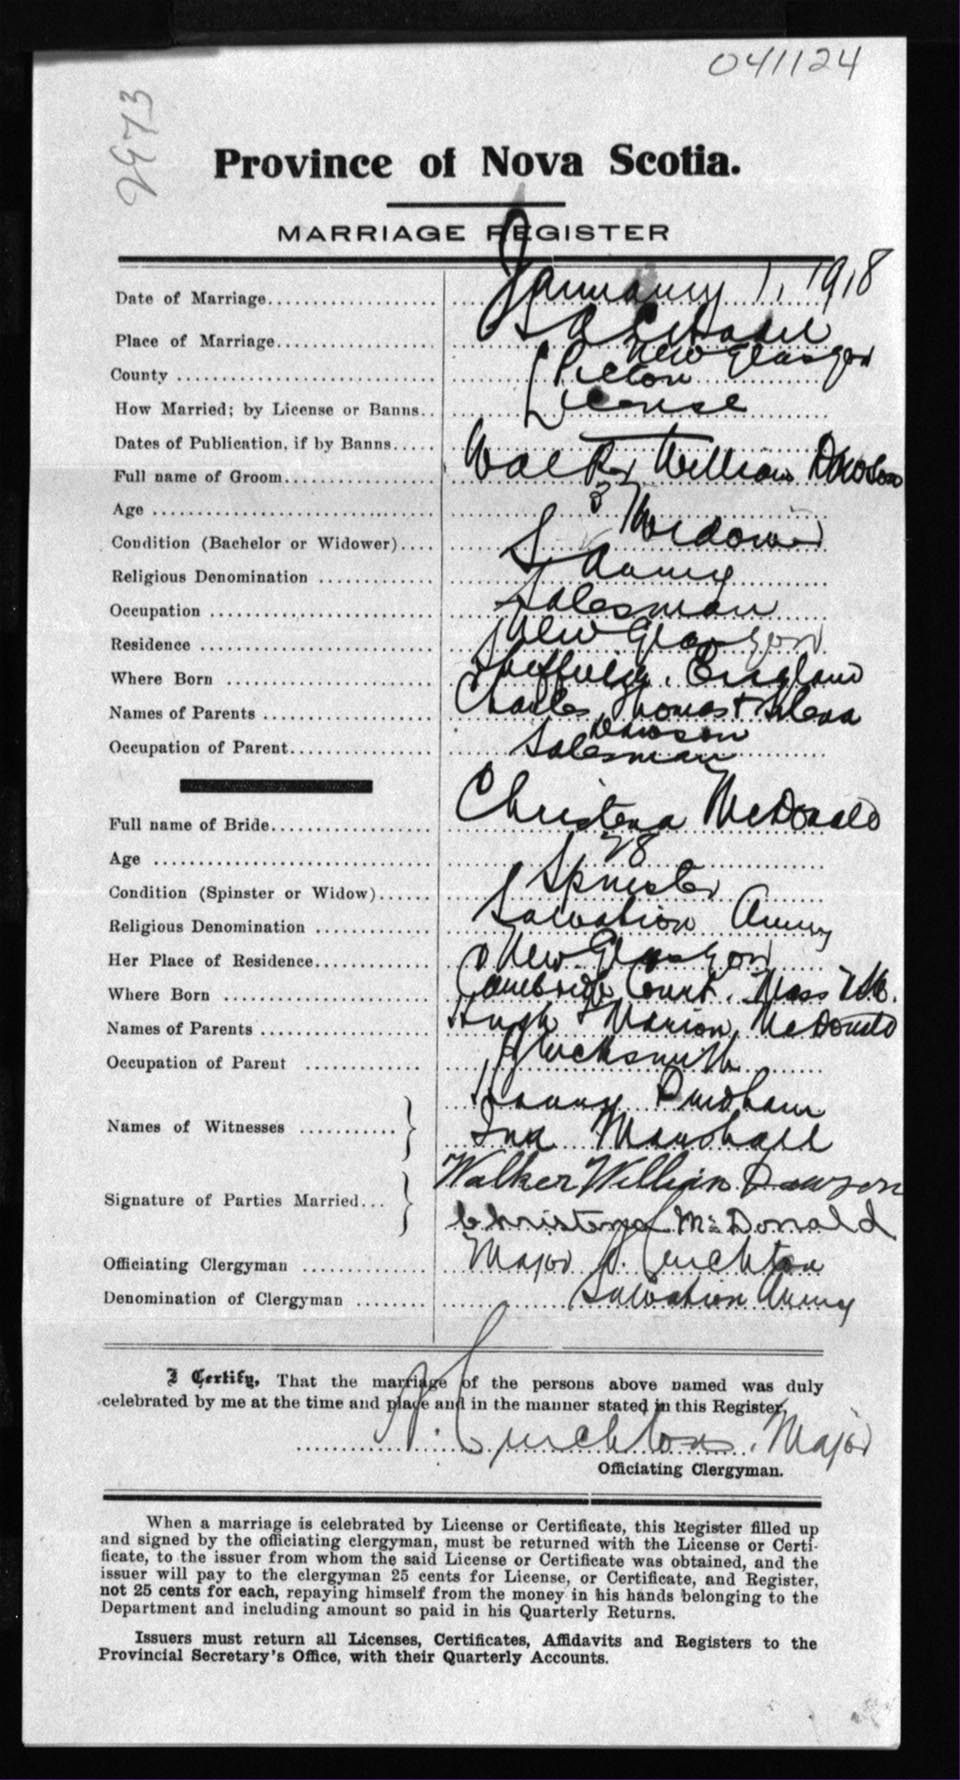 041124
2973
Province of Nova Scotia.
MARRIAGE REGISTER
Date of Marriage January 1, 1918
Place of Marriage S A Citadel New Glasgow
County Pictou
How Married; by License or Banns License
Dates of Publication, if by Banns
Full name of Groom Walker William Dawson
Age
Condition (Bachelor or Widower) Widower
Religious Denomination S. Army
Occupation Salesman
Residence New Glasgow
Where Born England
Names of Parents Charles Thomas + Dawson
Occupation of Parent Salesman
Full name of Bride Christena McDonald
Age 28
Condition (Spinster or Widow) Spinster
Religious Denomination Salvation Army
Her Place of Residence New Glasgow
Where Born Cambridge Court. Mass
Names of Parents Hugh + Marion McDonald
Occupation of Parent Blacksmith
Names of Witnesses
Marshall
Signature of Parties Married Walker William Dawson
Christena McDonald
Officiating Clergyman Major Crichton
Denomination of Clergyman Salvation Army
I Certify, That the marriage of the persons above named was duly
celebrated by me at the time and place and in the manner stated in this Register.
Crichton, Major
Officiating Clergyman.
When a marriage is celebrated by License or Certificate, this Register filled up
and signed by the officiating clergyman, must be returned with the License or Certi-
ficate, to the issuer from whom the said License or Certificate was obtained, and the
issuer will pay to the clergyman 25 cents for License, or Certificate, and Register,
not 25 cents for each, repaying himself from the money in his hands belonging to the
Department and including amount so paid in his Quarterly Returns.
Issuers must return all Licenses, Certificates, Affidavits and Registers to the
Provincial Secretary's Office, with their Quarterly Accounts.